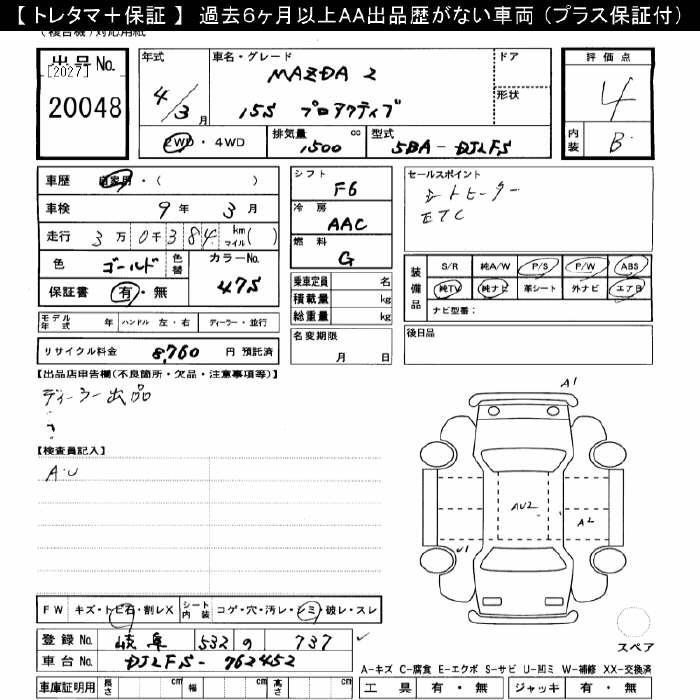 【 トレタマ＋保証 】 過去6ヶ月以上AA出品歴がない車両（プラス保証付）
(複合機)対応用紙
出品No.
[2027]
20048
年式
4/3月
車名・グレード
MAZDA 2
15S プロアクティブ
ドア
形状
評価点
4
内装
B
2WD・4WD
排気量 cc
1500
型式
5BA-DJLFS
車歴 自家用・( )
車検 9年 3月
走行 3万0千384 km マイル( )
色 ゴールド 色替
カラーNo.
47S
保証書 有・無
シフト
F6
冷房
AAC
燃料
G
乗車定員 名
積載量 kg
総重量 kg
名変期限
月 日
セールスポイント
シートヒーター
ETC
装備品
S/R 純A/W P/S P/W ABS
純TV 純ナビ 革シート 外ナビ エアB
ナビ型番:
後日品
モデル年式 年 ハンドル 左・右 ディーラー・並行
リサイクル料金 8,760 円 預託済
【出品店申告欄(不良箇所・欠品・注意事項等)】
ディーラー出品
【検査員記入】
A・U
A1
AU2
A2
U1
スペア
FW キズ・トビ石・割レX シート内装 コゲ・穴・汚レ・シミ・破レ・スレ
登録No. 岐阜 532 の 737
車台No. DJLFS-762452
A-キズ C-腐食 E-エクボ S-サビ U-凹ミ W-補修 XX-交換済
車庫証明用 長さ cm 幅 cm 高さ cm
工具 有・無 ジャッキ 有・無